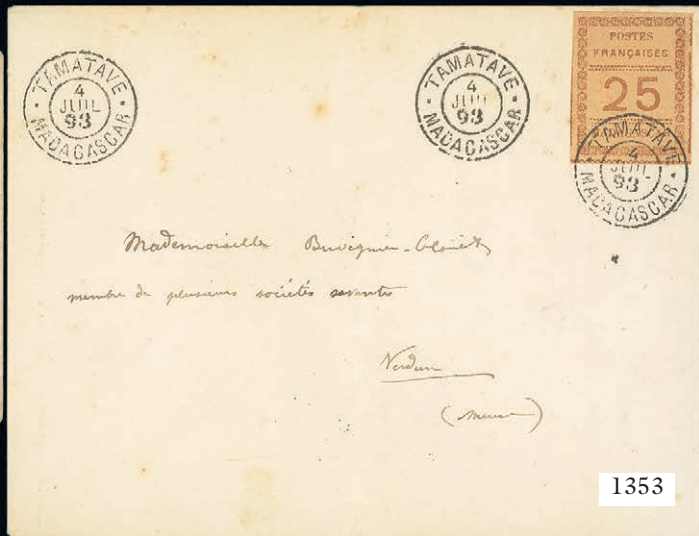 TAMATAVE
4
JUIL
93
MADAGASCAR
TAMATAVE
4
JUIL
93
MADAGASCAR
POSTES
FRANÇAISES
25
TAMATAVE
4
JUIL
93
MADAGASCAR
Mademoiselle Buvignier-Clouët
membre de plusieurs sociétés savantes
Verdun
(Meuse)
1353